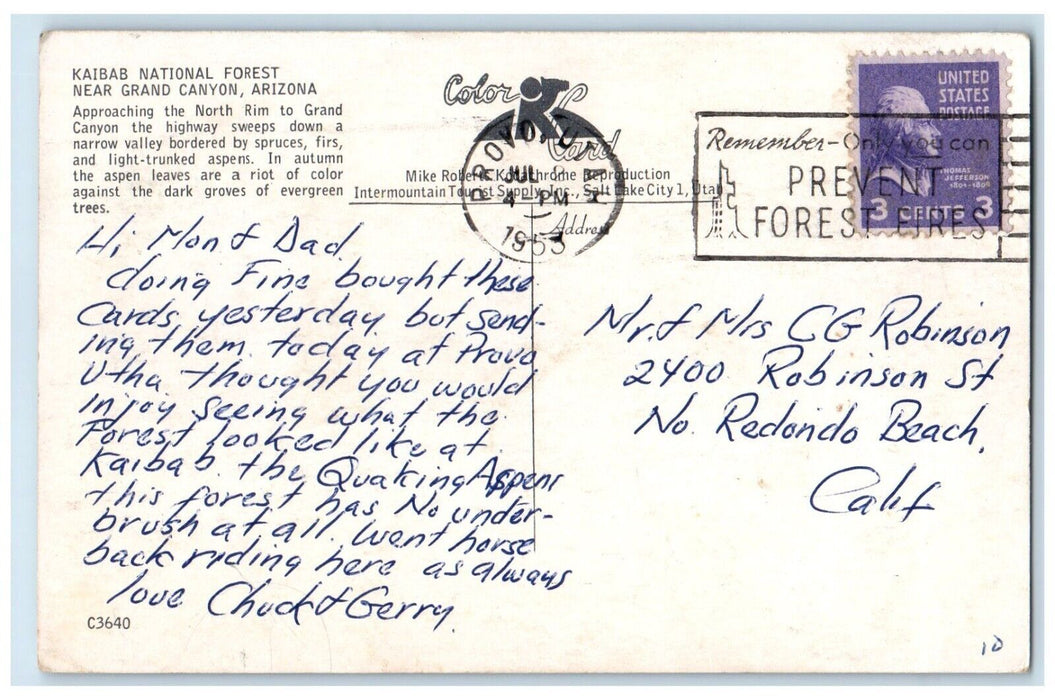 KAIBAB NATIONAL FOREST
NEAR GRAND CANYON, ARIZONA
Approaching the North Rim to Grand
Canyon the highway sweeps down a
narrow valley bordered by spruces, firs,
and light-trunked aspens. In autumn
the aspen leaves are a riot of color
against the dark groves of evergreen
trees.
Hi Mom & Dad
doing Fine bought these
cards yesterday but send-
ing them today at Provo
Utha thought you would
injoy seeing what the
Forest looked like at
Kaibab. the Quaking Aspens
this forest has No under-
brush at all. Went horse
back riding here as always
love Chuck & Gerry
C3640
Color Card
PROVO, UTAH
JUL
4 PM
1953
Mike Roberts Reproduction
Intermountain Tourist Supply, Inc., Salt Lake City 1, Utah
Address
Remember - Only you can
PREVENT
FOREST FIRES
UNITED
STATES
POSTAGE
THOMAS
JEFFERSON
1801-1809
3 CENTS 3
Mr. & Mrs CG Robinson
2400 Robinson St
No. Redondo Beach,
Calif
10